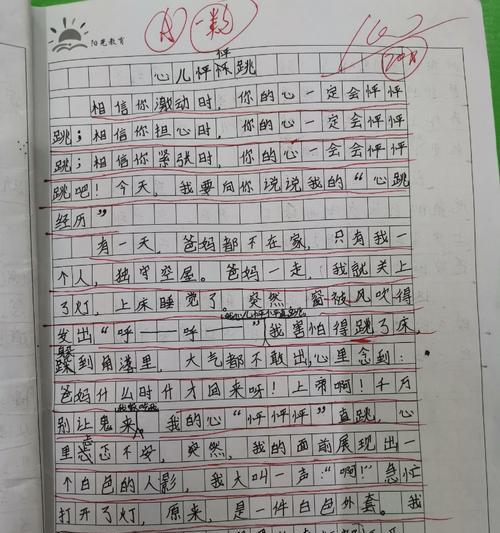 阳光教育
心儿怦怦跳
相信你激动时，你的心一定会怦怦
跳；相信你担心时，你的心一定会怦怦
跳；相信你紧张时，你的心一会会怦怦
跳吧！今天，我要向你说说我的“心跳
经历”
有一天，爸妈都不在家，只有我一
个人，独守空屋。爸妈一走，我就关上
了灯，上床睡觉了，突然，窗被风吹得
发出“呼——呼——”我害怕得跳了床，
躲到角落里，大气都不敢出，心里念到：
爸妈什么时什才回来呀！上帝啊！千万
别让鬼来，我的心“怦怦怦”直跳，心
里忐忑不安，突然，我的面前展现出一
个白色的人影，我大叫一声：“啊！”急忙
打开了灯，原来，是一件白色外套。我